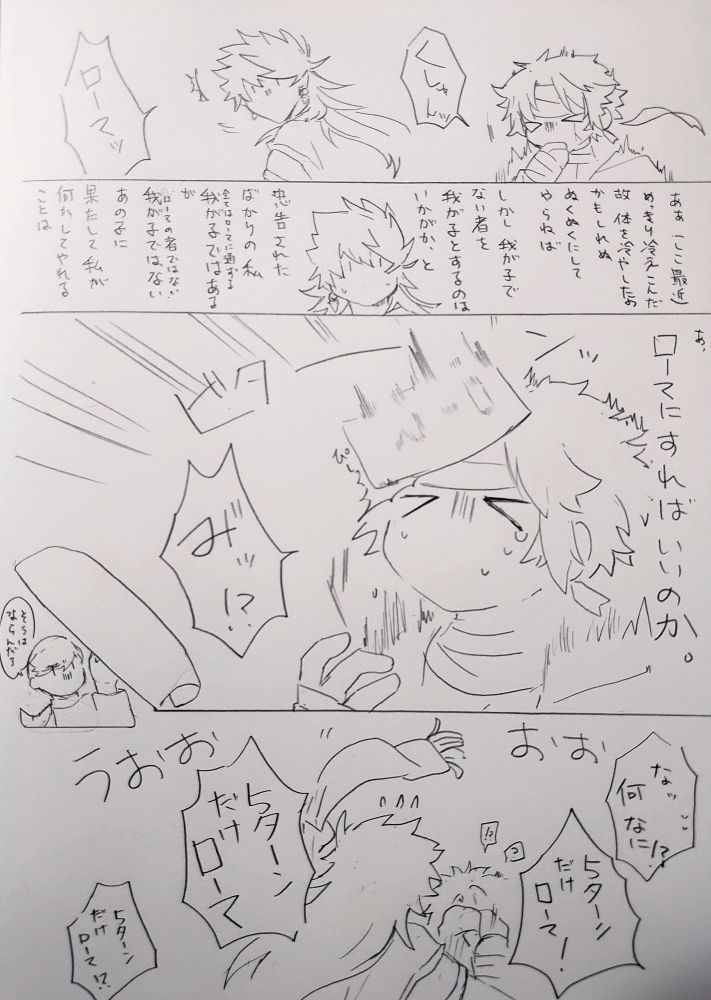 くしゃんッ
ローマッ
ああ（ここ最近）
めっきり冷えこんだ
故、体を冷やしたの
かもしれぬ
ぬくぬくにして
やらねば
しかし我が子で
ない者を
我が子とするのは
いかがか、と
忠告された
ばかりの私
全てはローマに通ずる
我が子ではある
が
ローマの者ではない
我が子ではない
あの子に
果たして私が
何かしてやれる
ことは
あ、
ローマにすればいいのか。
ビタ
ぴ
み゛ッ!?
そうは
ならんだろ
なッ
何なに!?
おお
うおお
5ターン
だけ
ローマ!
!?
?
5ターン
だけ
ローマ
5ターン
だけ
ローマ!?